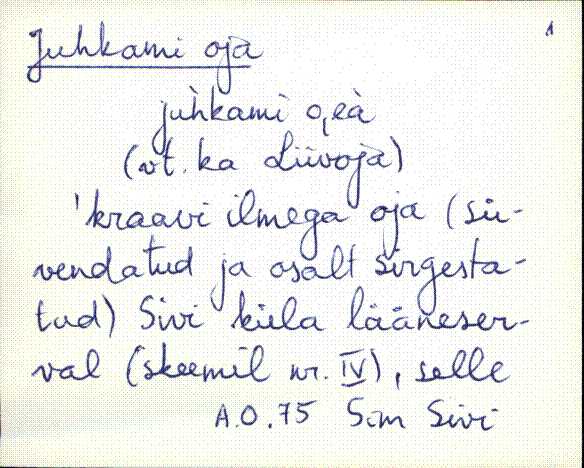 Juhkami oja 1
juhkami o̭eà
(vt. ka Liivoja)
'kraavi ilmega oja (sü-
vendatud ja osalt sirgesta-
tud) Sivi küla lääneser-
val (skeemil nr. IV), selle
A.O.75 Sim Sivi